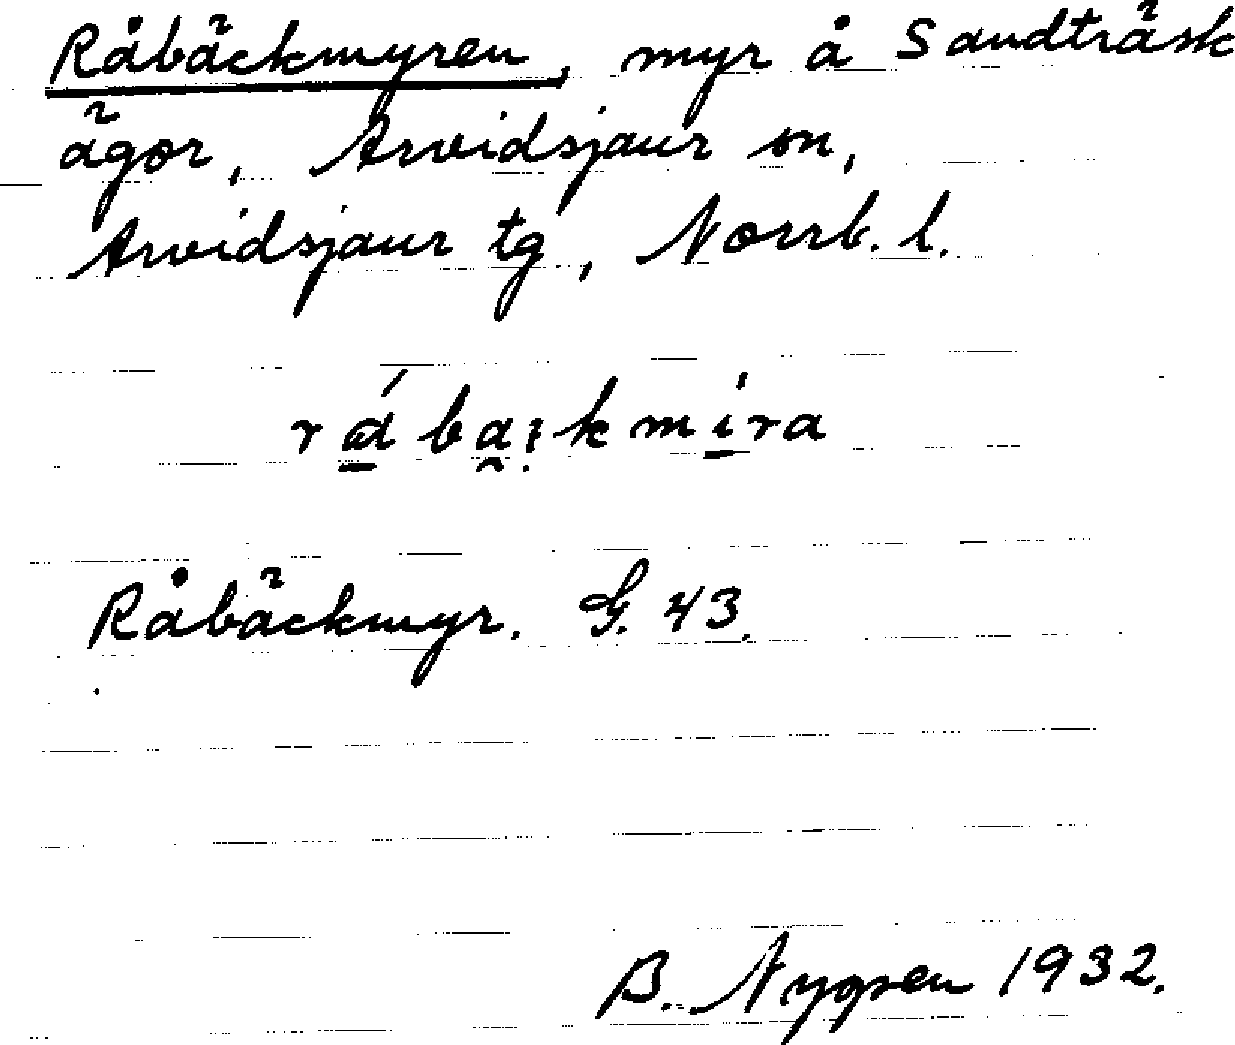 Råbäckmyren, myr å Sandträsk
ägor, Arvidsjaur sn,
Arvidsjaur tg, Norrb. l.
Råbäckmyr. G. 43.
B. 1932.